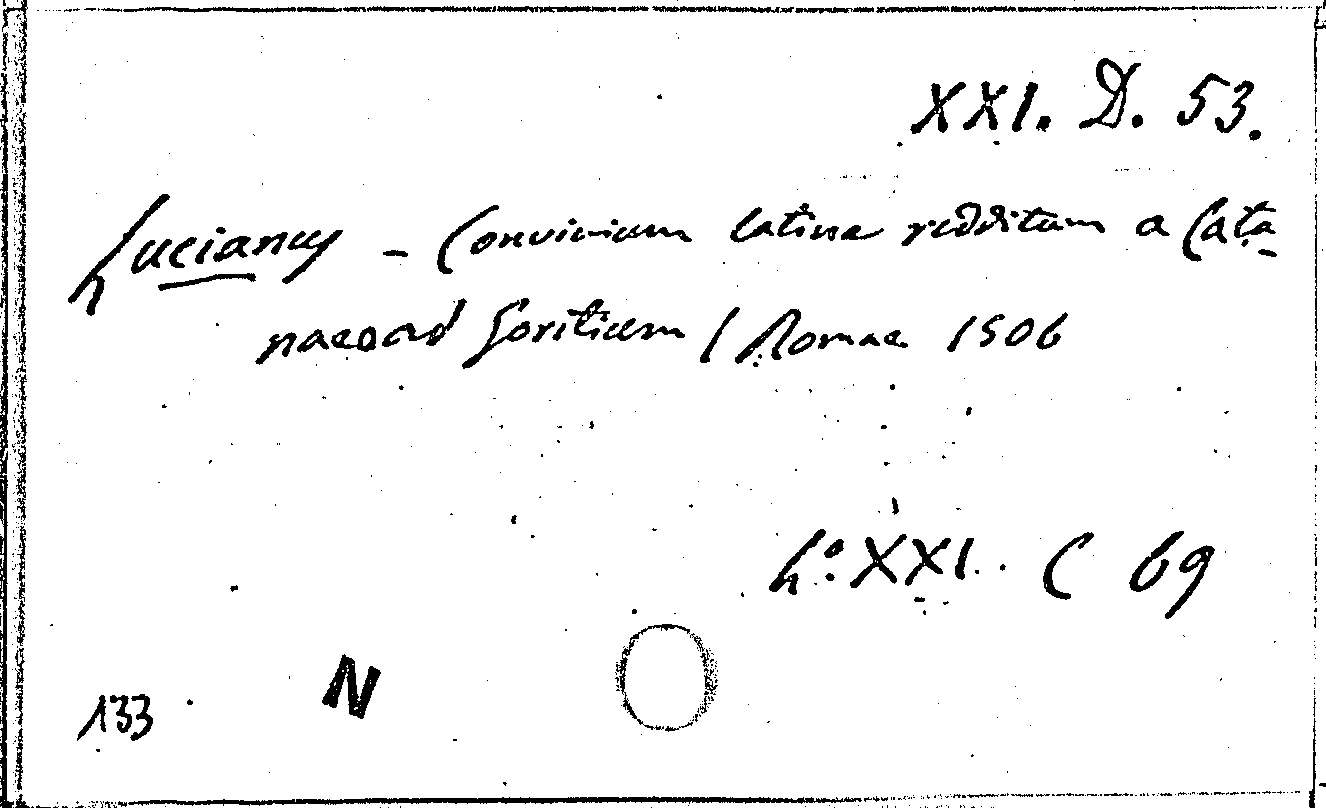 XXI. D. 53.
Lucianus – Convivium latine redditum a Cata-
naeo ad Goritium / Romae 1506
L.º XXI. C 69
133 N